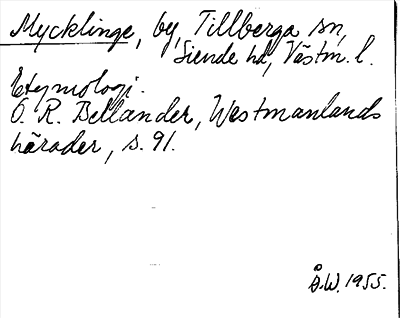 Mycklinge, by, Tillberga sn,
Siende hd, Västm. l.
Etymologi.
O. R. Bellander, Westmanlands
härader, s. 91.
Å.W. 1955.